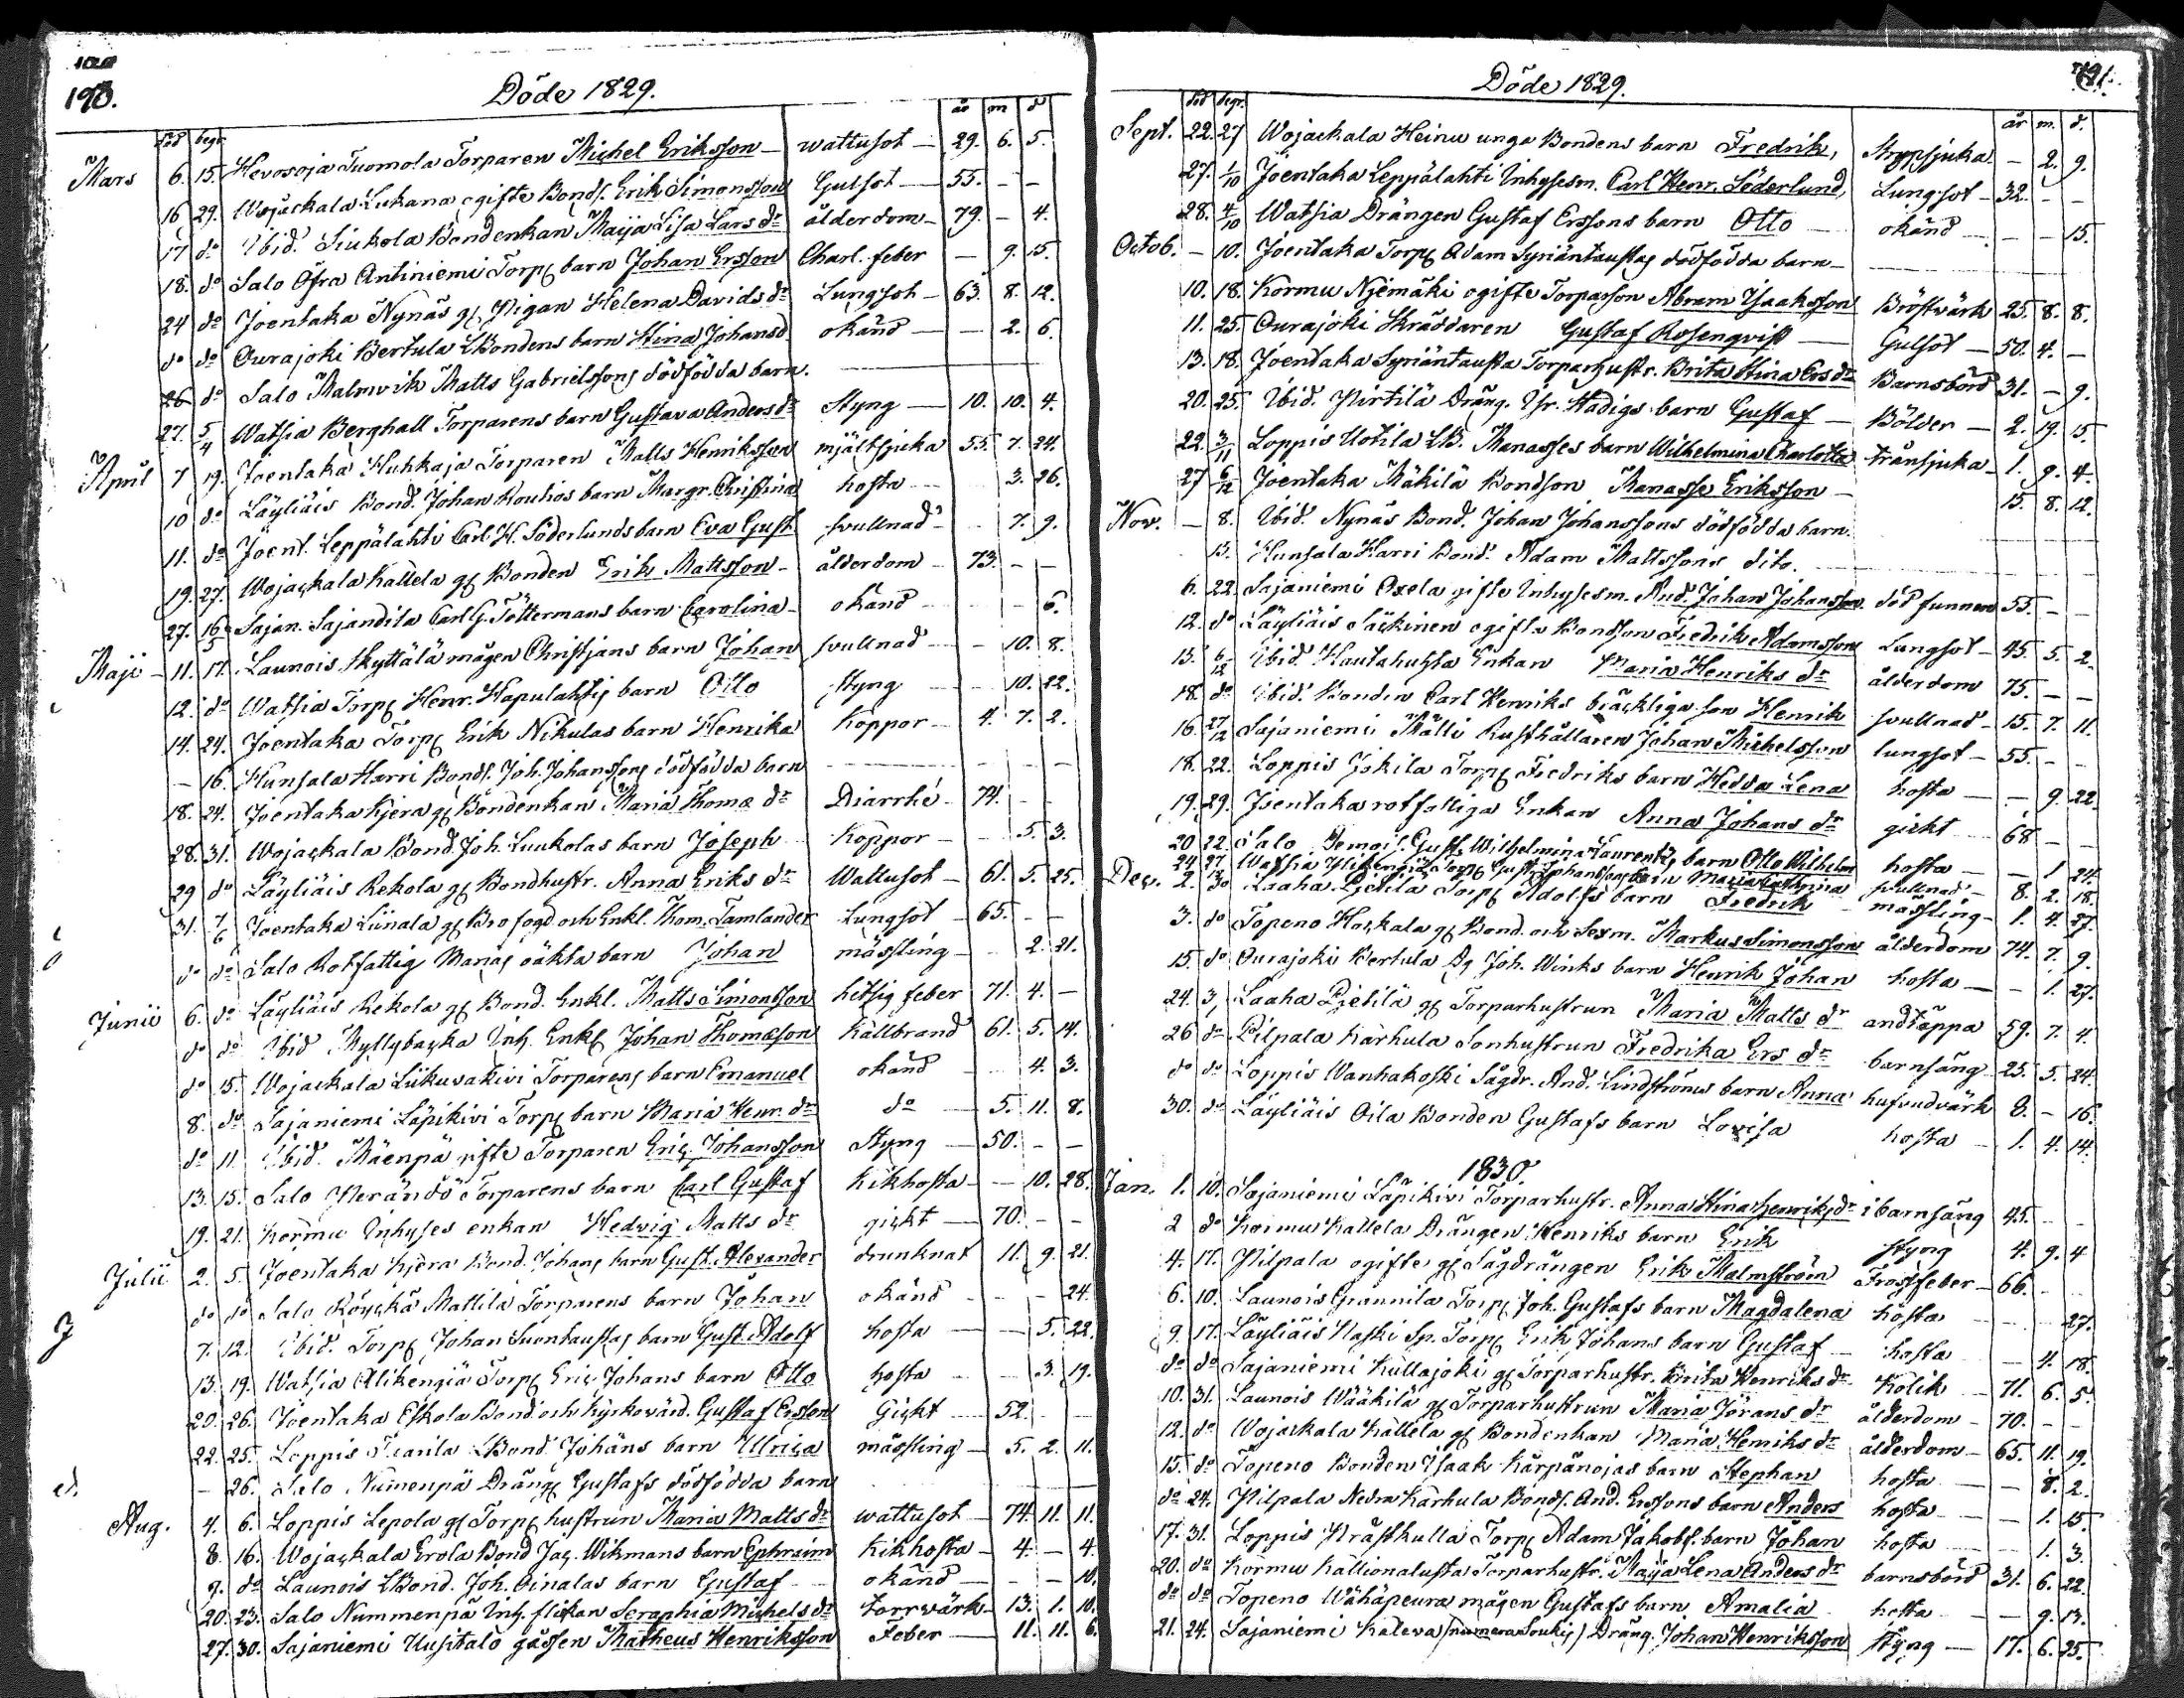 190.
Döde 1829.
död begr. år m d
Mars 6. 15. Hevosoja Tuomola Torparen Michel Eriksson wattusot 29. 6. 5.
16 29. Wojackala Lukana ogifte Bonds. Erik Simonsson Gulsot 55. - -
17 do Ibid. Siukola Bondenkan Maija Lisa Lars dr ålderdom 79. - 4.
18. do Salo Öfra Antiniemi Torps barn Johan Ersson Charl. feber - 9. 15.
24 do Joentaka Nynäs gl Pigan Helena Davids dr Lungsot 63. 8. 12.
do do Ourajoki Bertula LBondens barn Stina Johansd. okänd - 2. 6.
26 do Salo Malmvik Matts Gabrielssons dödfödda barn.
27. 5/4 Watsia Berghall Torparens barn Gustava Anders dr Styng 10. 10. 4.
April 7 19. Joentaka Huhkaja Torparen Matts Henriksson mjältsjuka 55. 7. 24.
10 do Läyliäis Bond. Johan Kouhios barn Margr. Christina hosta - 3. 26.
11. do Joent. Leppälahti Carl H. Söderlunds barn Eva Gust. svullnad - 7. 9.
19. 27. Wojackala Kattela gl Bonden Erik Mattsson ålderdom 73. - -
27. 16/5 Sajan. Sajandila Carl G. Töttermans barn Carolina okänd - - 6.
Maji 11. 17. Launois Skyttälä mågen Christjans barn Johan svullnad - 10. 8.
12. do Watsia Torps Henr. Hapulahtis barn Otto Styng - 10. 22.
14. 24. Joentaka Torps Erik Nikulas barn Henrika Koppor 4. 7. 2.
- 16. Hunsala Harri Bonds. Joh. Johanssons dödfödda barn
18. 24. Joentaka Kjera gl Bondenkan Maria Thomæ dr Diarrhé 74. - -
28. 31. Wojackala Bond. Joh. Luukolas barn Joseph Koppor - 5. 3.
29 do Läyliäis Rekola gl Bondhustr. Anna Eriks dr Wattusot 61. 5. 25.
31. 7/6 Joentaka Liinala gl Brofogd och Enkl. Thom. Tamlander Lungsot 65. - -
do do Salo Rotfattig Marias oäkta barn Johan mässling - 2. 21.
Junii 6. do Läyliäis Rekola gl Bond. Enkl. Matts Simonsson hitsig feber 71. 4. -
do do Ibid Myllybacka Inh. Enkl Johan Thomasson Kallbrand 61. 5. 14.
do 15. Wojackala Liikuvakivi Torparens barn Emanuel okänd - 4. 3.
8. do Sajaniemi Läpikivi Torps barn Maria Henr. dr do 5. 11. 8.
do 11 Ibid. Mäenpä gifte Torparen Eric Johansson Styng 50. - -
13. 15. Salo Torparens barn Carl Gustaf Kikhosta - 10. 28.
19. 21. Kormu Inhyses enkan Hedvig Matts dr gickt 70. - -
Julii 2. 5. Joentaka Kjera Bond. Johans barn Gust. Alexander drunknat 11. 9. 21.
do do Salo Röyskä Mattila Torparens barn Johan okänd - - 24.
7. 12. Ibid. Torps Johan Suontaustas barn Gust. Adolf hosta - 5. 22.
13. 19. Watsia Alikengiä Torps Eric Johans barn Otto hosta - 3. 19.
20. 26. Joentaka Eskola Bond och Kyrkovärd. Gustaf Ersson Gickt 52. - -
22. 25. Loppis LBond Johans barn Ulrica mässling 5. 2. 11.
- 26. Salo Numenpä Drängs Gustafs dödfödda barn
Aug. 4. 6. Loppis Lepola gl Torps hustrun Maria Matts dr wattusot 74. 11. 11.
8. 16. Wojackala Erola Bond Jac. Wikmans barn Ephraim Kikhosta 4. - 4.
9. do Launois LBond. Joh. Oinalas barn Gustaf okänd - - 10.
20. 23. Salo Nummenpä Inh. flickan Seraphia Michels dr Torrvärk 13. 1. 10.
27. 30. Sajaniemi Uusitalo gossen Matheus Henriksson Feber 11. 11. 6.
191.
Döde 1829.
död begr. år m. d.
Sept. 22. 27 Wojackala Heinu unga Bondens barn Fredrik, Strypsjuka - 2. 9.
27. 1/10 Joentaka Leppälahti Inhysesm. Carl Henr. Söderlund, Lungsot 32. - -
28. 4/10 Watsia Drängen Gustaf Erssons barn Otto okänd - - 15.
Octob. - 10. Joentaka Torps Adam Syriäntaustas dödfödda barn
10. 18. Kormu Njemäki ogifte Torparson Abram Isaksson Bröstvärk 25. 8. 8.
11. 25. Ourajoki Skräddaren Gustaf Rosenqvist Gulsot 50. 4. -
13. 18. Joentaka Syriäntausta Torparhustr. Brita Stina Ers dr Barnsbörd 31. - 9.
20. 25. Ibid. Pirtilä Dräng. Isr. Stadigs barn Gustaf Bölder 2. 19. 15.
22. 3/11 Loppis Uotila LB. Manasses barn Wilhelmina Charlotta trånsjuka 1. 9. 4.
27 6/12 Joentaka Mäkilä Bondson Manasse Eriksson 15. 8. 12.
Nov. - 8. Ibid. Nynäs Bond. Johan Johanssons dödfödda barn.
15. Hunsala Harri Bond. Adam Mattssons dito.
6. 22. Sajaniemi Oxela gifte Inhysesm. And. Johan Johansson död funnen 55. - -
12. do Läyliäis Säckinen ogifta Bondson Fredrik Adamsson Lungsot 45. 5. 2.
15. 6/12 Ibid. Hautahuhta Enkan Maria Henriks dr ålderdom 75. - -
18. do Ibid. Bonden Carl Henriks bräckliga son Henrik svullnad 15. 7. 11.
16. 27/12 Sajaniemi Mälli Rusthållaren Johan Michelsson lungsot 55. - -
18. 22. Loppis Jokila Torps Fredriks barn Hedda Lena hosta - 9. 22
19. 29. Joentaka rotfattiga Enkan Anna Johans dr gickt 68 - -
20 22. Salo Demois. Gust. Wilhelmina Laurentz barn Otto Wilhelm hosta - 1 24
24 27 Watsia Alikengiä Torps Gust. Johanssons barn Maria Cathrina svullnad 8. 2. 18.
Dec. 2. 30 Laaha Pietilä Torps Adolfs barn Fredrik mässling 1. 4. 27.
3. do Topeno Hackala gl Bond. och Sexm. Markus Simonsson ålderdom 74. 7. 9.
15. do Ourajoki Bertula Dg Joh. Winks barn Henrik Johan hosta - 1. 27.
24. 3/ Laaha Pietilä gl Torparhustrun Maria Matts dr andtäppa 59. 7. 4
26 do Pilpala Karhula Sonhustrun Fredrika Ers dr barnsäng 25. 5. 24.
do do Loppis Wanhakoski Sågdr. And. Lindströms barn Anna hufvudvärk 8. - 16.
30. do Läyliäis Oila Bonden Gustafs barn Lovisa hosta 1. 4. 14.
1830.
Jan. 1. 10. Sajaniemi Läpikivi Torparhustr. Anna Stina Henriks dr i barnsäng 45. - -
2 do Kormu Kattela Drängen Henriks barn Erik Styng 4. 9. 4
4. 17. Pilpala ogifte gl Sågdrängen Erik Malmström Frossfeber 66. -
6. 10. Launois Grannila Torps Joh. Gustafs barn Magdalena hosta - - 27.
9. 17. Läyliäis Kaski Sp. Torps Erik Johans barn Gustaf hosta - 4. 18.
do do Sajaniemi Kullajoki gl Torparhustr. Brita Henriks dr Kolik 71. 6. 5.
10. 31. Launois Wääkilä gl Torparhustrun Maria Jörans dr ålderdom 70. - -
12. do Wojackala Kattela gl Bondenkan Maria Henriks dr ålderdom 65. 11. 19.
15. do Topeno Bonden Isaak Kärpänojas barn Stephan hosta - 8. 2.
do 24. Pilpala Nedra Karhula Bonds. And. Erssons barn Anders hosta - 1. 15.
17. 31. Loppis Kråskulla Torps Adam Jakobs. barn Johan hosta - 1. 3.
20. do Kormu Kallionalusta Torparhustr. Maja Lena Anders dr barnsbörd 31. 6. 22.
do do Topeno Wähäpeura mågen Gustafs barn Amalia hosta - 9. 13.
21. 24. Sajaniemi Kaleva (numera Soukis) Dräng. Johan Henriksson Styng 17. 6. 25.